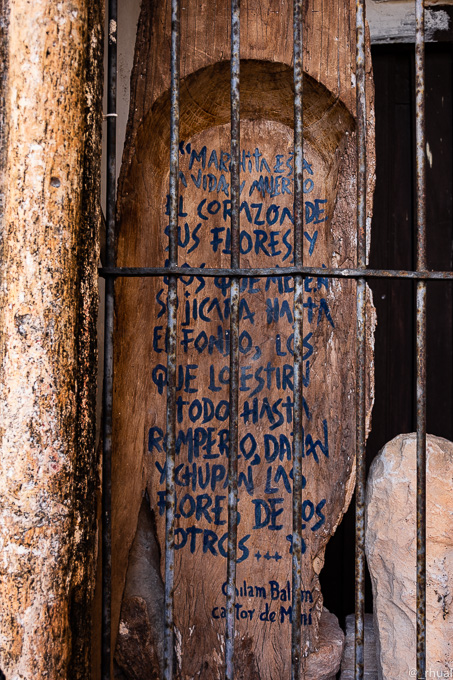 "MARCHITA ESTÁ
LA VIDA Y MUERTO
EL CORAZON DE
SUS FLORES Y
LOS QUE METEN
SU JICARA HASTA
EL FONDO, LOS
QUE LO ESTIRAN
TODO HASTA
ROMPERLO, DAÑAN
Y CHUPAN LAS
FLORES DE LOS
OTROS...
Chilam Balam
cantor de Maní
@_rhual